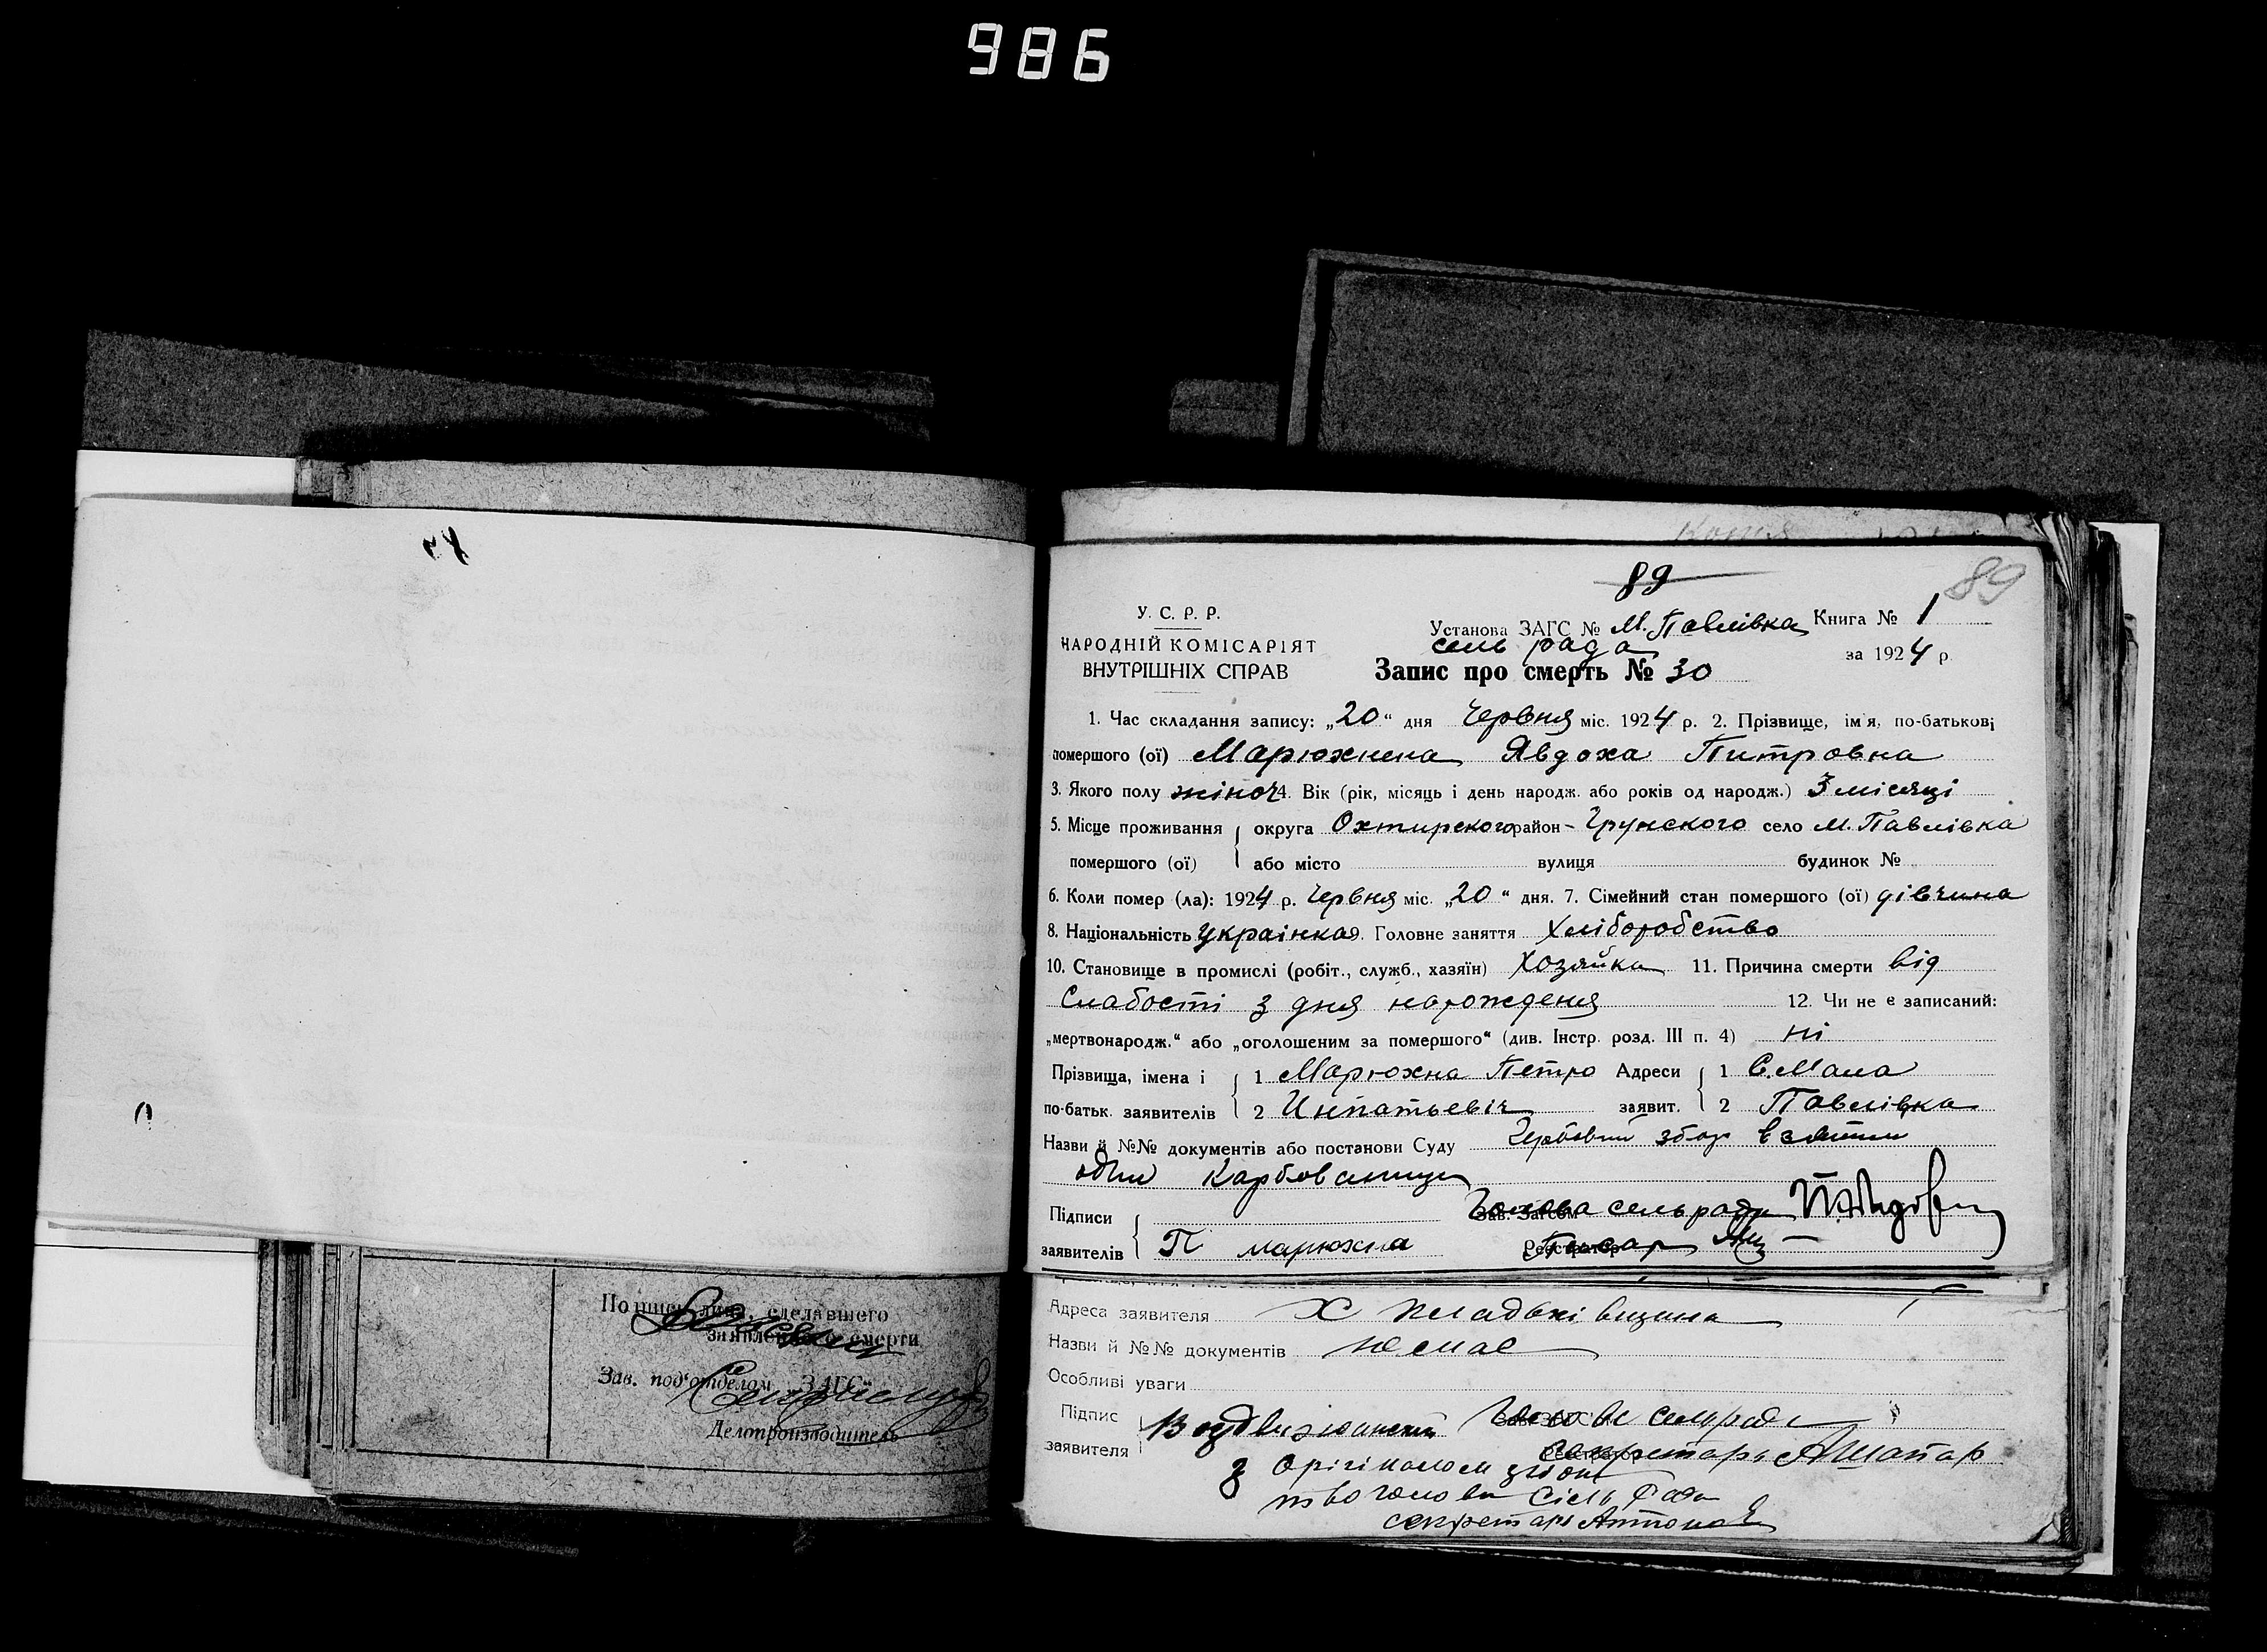 986
Копия
89
89
У. С. Р. Р.
НАРОДНІЙ КОМІСАРІЯТ
ВНУТРІШНІХ СПРАВ
Установа ЗАГС № М. Павлівка Книга № 1
сель рада
за 1924 р.
Запис про смерть № 30
1. Час складання запису: „20“ дня Червня міс. 1924 р. 2. Прізвище, ім'я, по-батькові
помершого (ої) Марюхнена Явдоха Питровна
3. Якого полу жіноч 4. Вік (рік, місяць і день народж. або років од народж.) 3 місяці
5. Місце проживання округа Охтирского район - Грунского село М. Павлівка
помершого (ої) або місто вулиця будинок №
6. Коли помер (ла): 1924 р. Червня міс. „20“ дня. 7. Сімейний стан помершого (ої) дівчина
8. Національність Украінка 9. Головне заняття Хліборобство
10. Становище в промислі (робіт., служб., хазяїн) Хозяйка 11. Причина смерти від
Слабості з дня нарождения 12. Чи не є записаний:
„мертвонародж.“ або „оголошеним за помершого“ (див. Інстр. розд. III п. 4) ні
Прізвища, імена і 1 Марюхна Петро Адреси 1 С. Мала
по-батьк. заявителів 2 Ипатьевіч заявит. 2 Павлівка
Назви й №№ документів або постанови Суду Гербовий збор взятий
один Карбованець
Підписи Зав. Загсом Голова сельради
заявителів П Марюхна Реєстратор Писар
Адреса заявителя Х
Назви й №№ документів немає
Особливі уваги
Підпис Голова сельради
заявителя Секретарь АШапар
З Орігіналом
Сіль Ради
секретарь
Подпись лица, сделавшего
заявление о смерти
Зав. под'отделом ЗАГС
Делопроизводитель